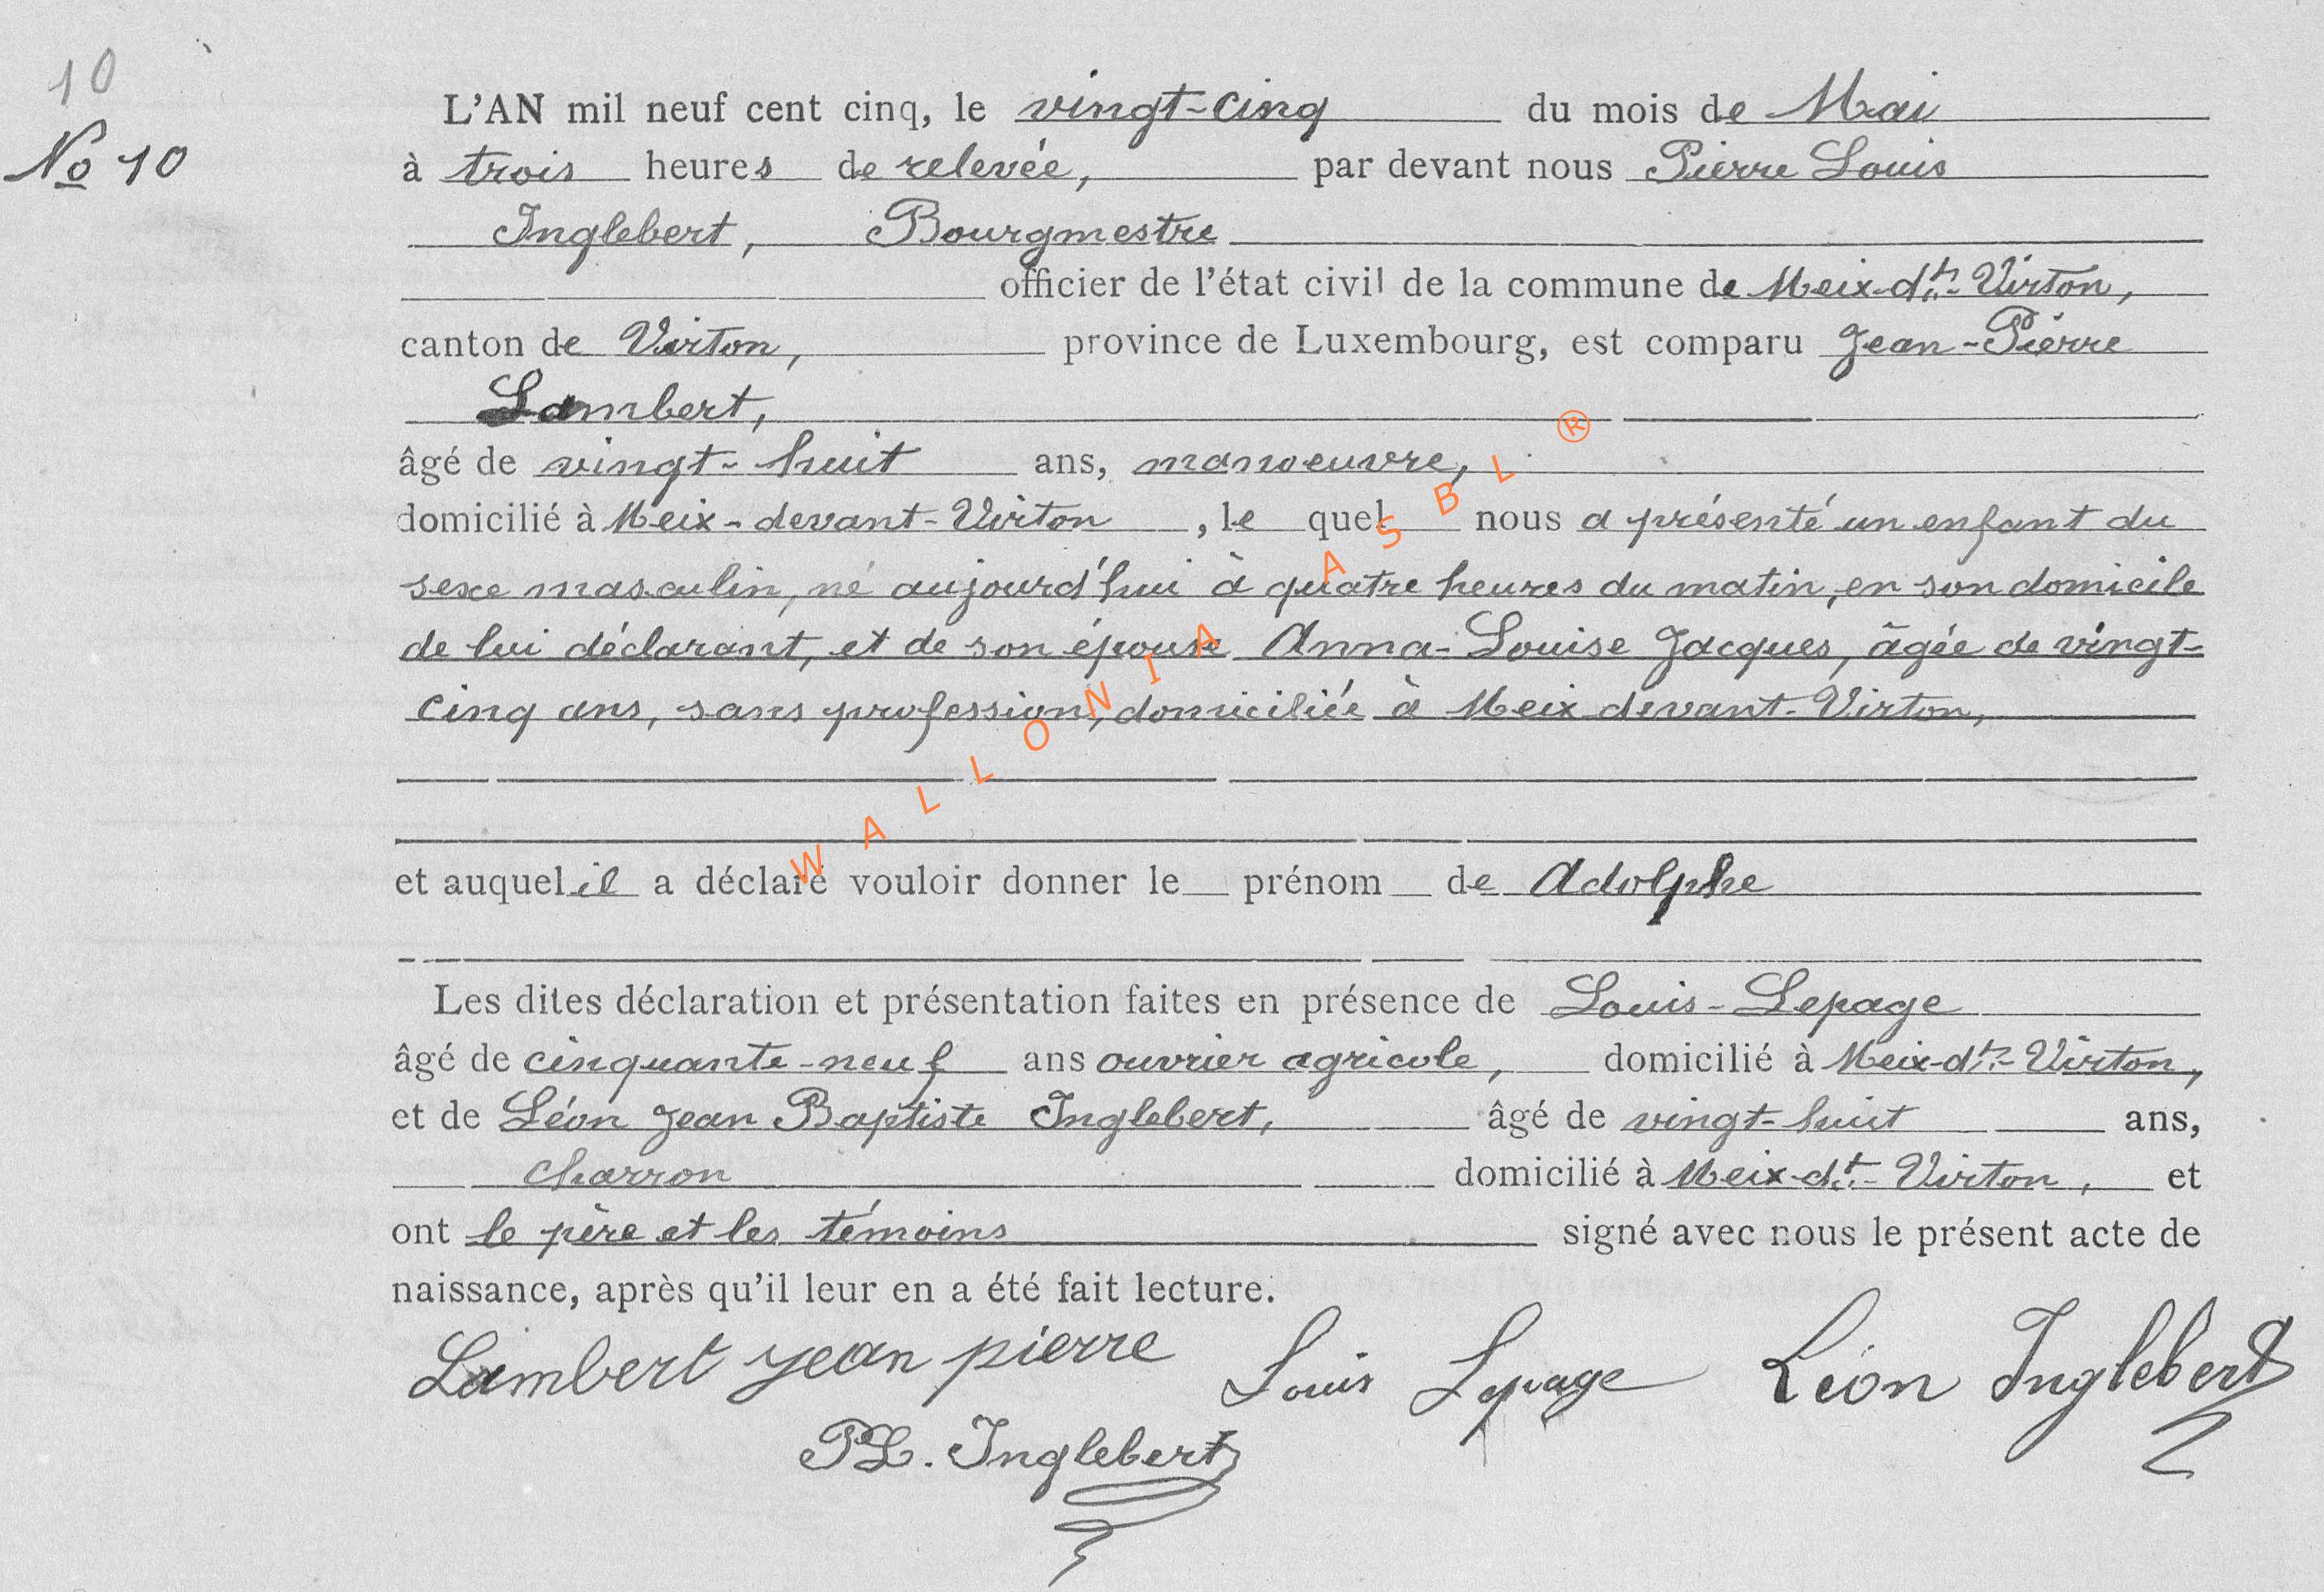 10
No 10
L'AN mil neuf cent cinq, le vingt-cinq du mois de Mai
à trois heures de relevée, par devant nous Pierre Louis
Inglebert, Bourgmestre
officier de l'état civil de la commune de Meix-dt-Virton,
canton de Virton, province de Luxembourg, est comparu Jean-Pierre
Lambert,
âgé de vingt-huit ans, manoeuvre,
domicilié à Meix-devant-Virton, le quel nous a présenté un enfant du
sexe masculin, né aujourd'hui à quatre heures du matin, en son domicile
de lui déclarant, et de son épouse Anna-Louise Jacques, âgée de vingt-
cinq ans, sans profession, domiciliée à Meix devant-Virton,
et auquel il a déclaré vouloir donner le prénom de Adolphe
Les dites déclaration et présentation faites en présence de Louis-Lepage
âgé de cinquante-neuf ans ouvrier agricole, domicilié à Meix-dt-Virton,
et de Léon Jean Baptiste Inglebert, âgé de vingt-huit ans,
charron domicilié à Meix-dt-Virton, et
ont le père et les témoins signé avec nous le présent acte de
naissance, après qu'il leur en a été fait lecture.
Lambert jean pierre Louis Lepage Léon Inglebert
PL. Inglebert
WALLONIA ASBL ®